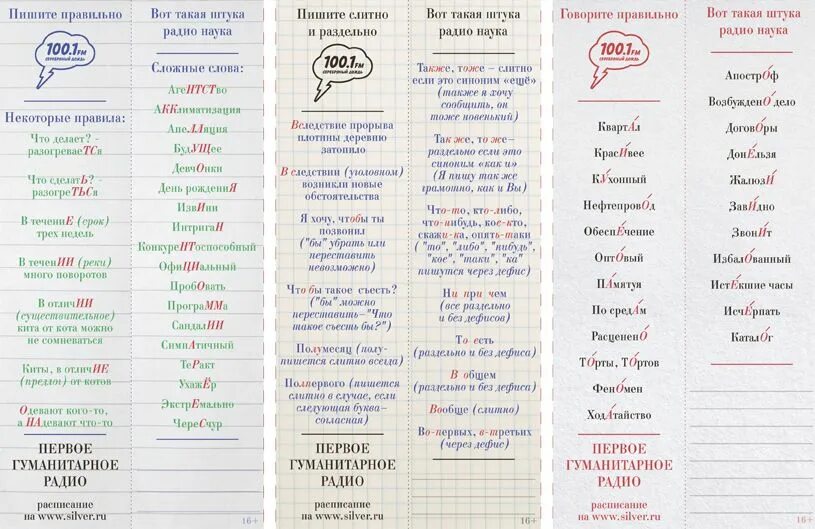 Пишите правильно
100.1FM
СЕРЕБРЯНЫЙ ДОЖДЬ
Некоторые правила:
Что делает? -
разогреваеТСя
Что сделатЬ? -
разогреТЬСя
В течениЕ (срок)
трех недель
В течениИ (реки)
много поворотов
В отличИИ
(существительное)
кита от кота можно
не сомневаться
Киты, в отличИЕ
(предлог) от котов
Одевают кого-то,
а НАдевают что-то
ПЕРВОЕ
ГУМАНИТАРНОЕ
РАДИО
расписание
на www.silver.ru
Вот такая штука
радио наука
Сложные слова:
АгеНТСТво
АККлиматизация
АпеЛЛяция
БудУЩее
ДевчОнки
День рождениЯ
ИзвИни
ИнтригаН
КонкуреНТоспособный
ОфиЦИальный
ПробОвать
ПрограММа
СандалИИ
СимпАтичный
ТеРакт
УхажЕр
ЭкстрЕмально
ЧереСчур
16+
Пишите слитно
и раздельно
100.1FM
СЕРЕБРЯНЫЙ ДОЖДЬ
Вследствие прорыва
плотины деревню
затопило
В следствии (уголовном)
возникли новые
обстоятельства
Я хочу, чтобы ты
позвонил
("бы" убрать или
переставить
невозможно)
Что бы такое съесть?
("бы" можно
переставить-"Что
такое съесть бы?")
Полумесяц (полу-
пишется слитно всегда)
Полпервого (пишется
слитно в случае, если
следующая буква-
согласная)
ПЕРВОЕ
ГУМАНИТАРНОЕ
РАДИО
расписание
на www.silver.ru
Вот такая штука
радио наука
Также, тоже – слитно
если это синоним «ещё»
(также я хочу
сообщить, он
тоже новенький)
Так же, то же–
раздельно если это
синоним «как и»
(Я пишу так же
грамотно, как и Вы)
Что-то, кто-либо,
что-нибудь, кое-кто,
скажи-ка, опять-таки
( "то", "либо", "нибудь",
"кое", "таки", "ка"
пишутся через дефис)
Ни при чем
(все раздельно
и без дефисов)
То есть
(раздельно и без дефиса)
В общем
(раздельно и без дефиса)
Вообще (слитно)
Во-первых, в-третьих
(через дефис)
16+
Говорите правильно
100.1FM
СЕРЕБРЯНЫЙ ДОЖДЬ
КвартА́л
КрасИ́вее
КУ́хонный
НефтепровО́д
ОбеспЕ́чение
ОптО́вый
ПА́мятуя
По средА́м
РасцененО́
ТО́рты, ТО́ртов
ФенО́мен
ХодА́тайство
ПЕРВОЕ
ГУМАНИТАРНОЕ
РАДИО
расписание
на www.silver.ru
Вот такая штука
радио наука
АпострО́ф
ВозбужденО́ дело
ДоговО́ры
ДонЕ́льзя
ЖалюзИ́
ЗавИ́дно
ЗвонИ́т
ИзбалО́ванный
ИстЕ́кшие часы
ИсчЕ́рпать
КаталО́г
16+